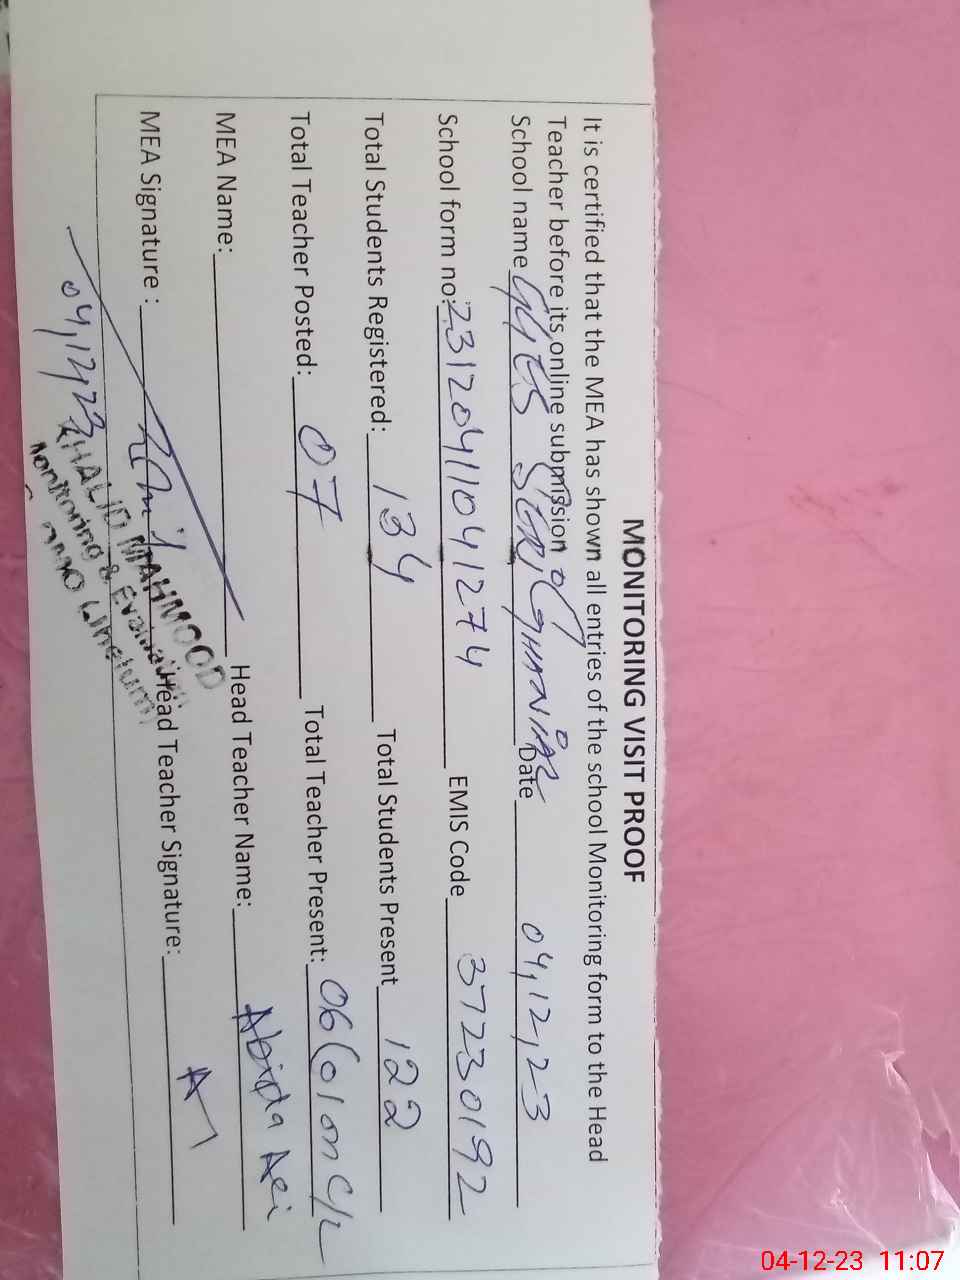 MONITORING VISIT PROOF
It is certified that the MEA has shown all entries of the school Monitoring form to the Head
Teacher before its online submission
School name GGES Date 04,12,23
School form no: 23120411041274 EMIS Code 37230192
Total Students Registered: 134 Total Students Present 122
Total Teacher Posted: 07 Total Teacher Present: 06(01 on C/L
MEA Name: Head Teacher Name: Abida
MEA Signature : Head Teacher Signature:
04,12,23
KHALID MAHMOOD
Monitoring & Evaluation
04-12-23 11:07